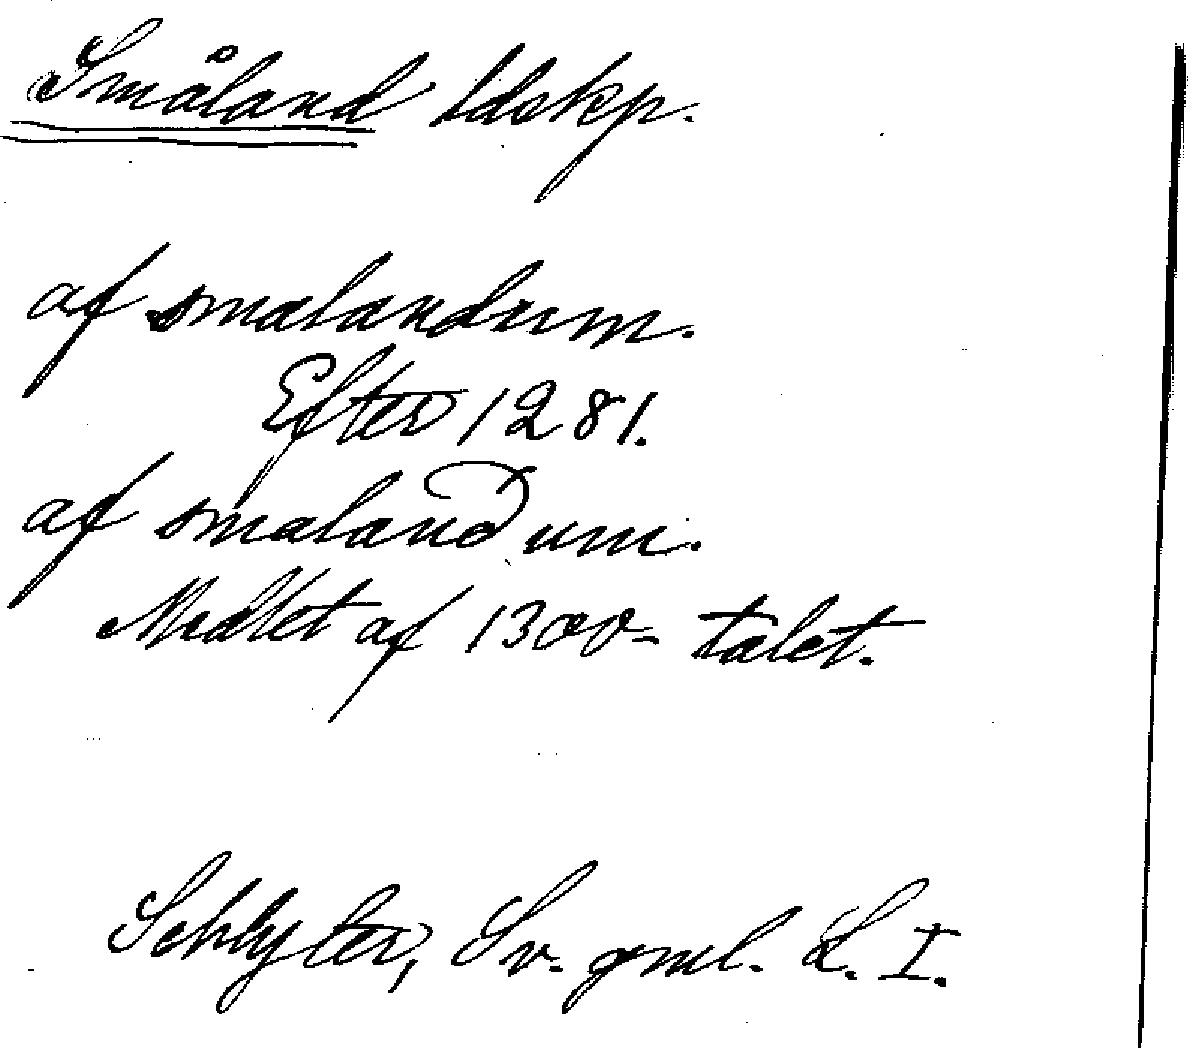 Småland ldskp.
af smalandum.
Efter 1281.
af smalandum.
Midlet af 1300-talet.
Schlyter, Sv. gml. L. I.